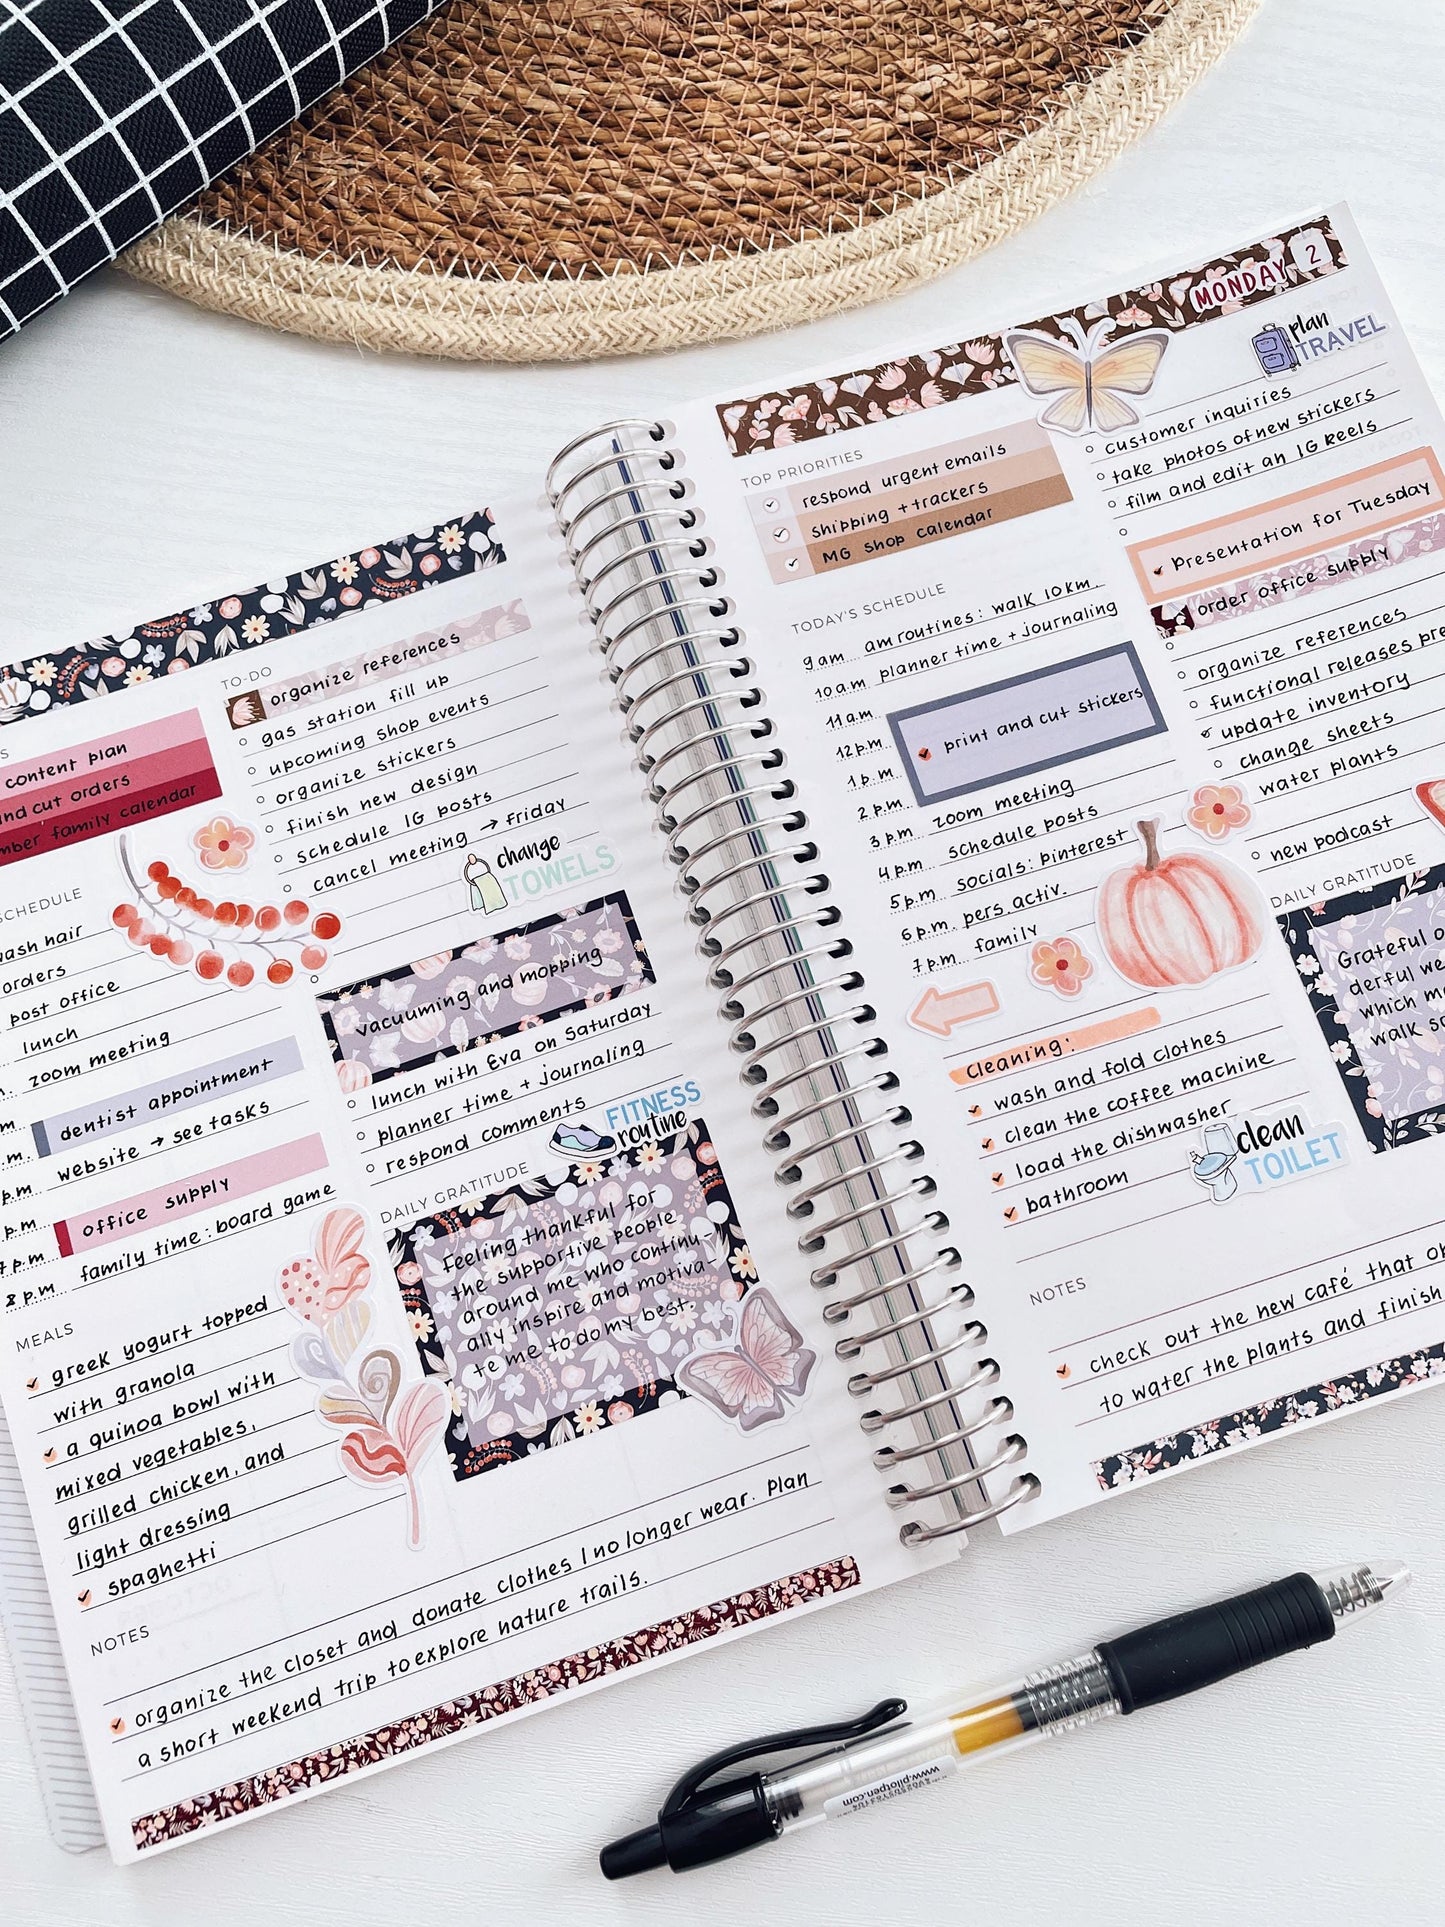 AY
S
content plan
nd cut orders
mber family calendar
SCHEDULE
ash hair
orders
post office
lunch
zoom meeting
dentist appointment
website → see tasks
office supply
family time: board game
8 p.m.
MEALS
greek yogurt topped
with granola
a quinoa bowl with
mixed vegetables,
grilled chicken, and
light dressing
spaghetti
TO-DO
organize references
gas station fill up
upcoming shop events
organize stickers
finish new design
schedule IG posts
cancel meeting → friday
change
TOWELS
vacuuming and mopping
lunch with Eva on Saturday
planner time + journaling
respond comments
FITNESS
routine
DAILY GRATITUDE
Feeling thankful for
the supportive people
around me who continu-
ally inspire and motiva-
te me to do my best.
NOTES
organize the closet and donate clothes I no longer wear. Plan
a short weekend trip to explore nature trails.
MONDAY 2
TOP PRIORITIES
respond urgent emails
shipping + trackers
MG shop calendar
TODAY'S SCHEDULE
9 am am routines: walk 10km.
10 a.m planner time + journaling
11 a.m
12 p.m print and cut stickers
1 p.m
2 p.m
3 p.m zoom meeting
4 p.m schedule posts
5 p.m socials: pinterest
6 p.m. pers. activ.
7 p.m family
cleaning:
wash and fold clothes
clean the coffee machine
load the dishwasher
bathroom
clean
TOILET
plan
TRAVEL
customer inquiries
take photos of new stickers
film and edit an IG Reels
Presentation for Tuesday
order office supply
organize references
functional releases pre
update inventory
change sheets
water plants
new podcast
DAILY GRATITUDE
Grateful o
derful we
which m
walk s
NOTES
check out the new café that o
to water the plants and finish
www.pilotpen.com